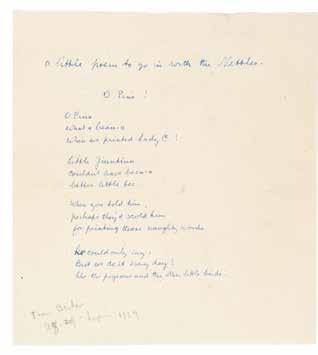 a little poem to go in with the Nettles.
O Pino!
O Pino
What a bean-o
When we printed Lady C.!
Little Giuntina
Couldn't have been a
better little bee.
When you told him,
perhaps they'd scold him
for printing those naughty words
he could only say:
But we do it every day!
like the pigeons and the other little birds.
1929